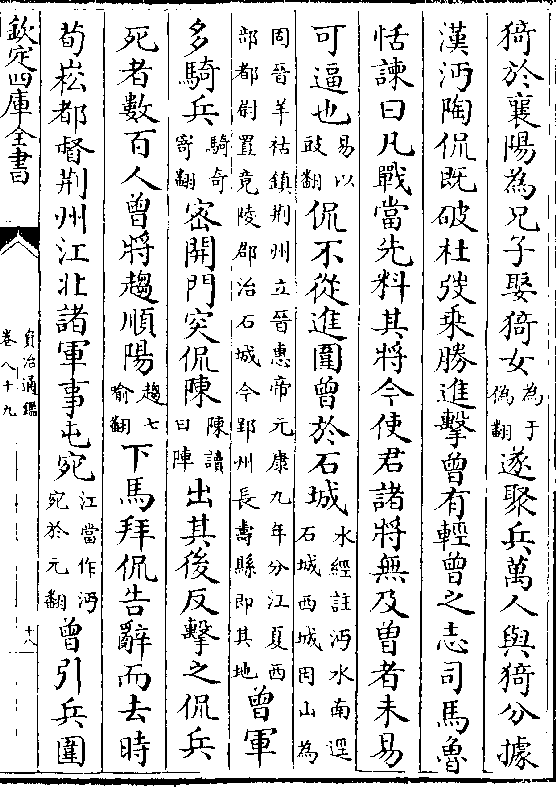 猗於襄陽為兄子娶猗女為于偽翻遂聚兵萬人與猗分據
漢沔陶侃既破杜弢乘勝進擊曾有輕曾之志司馬魯
恬諫曰凡戰當先料其將今使君諸將無及曽者未易
可逼也易以豉翻侃不從進圍曾於石城水經註沔水南逕石城西城因山為
固晉羊祜鎮荆州立晉惠帝元康九年分江夏西部都尉置竟陵郡治石城今郢州長壽縣即其地曾軍
多騎兵騎奇寄翻宻開門突侃陳陳讀曰陣出其後反擊之侃兵
死者數百人曾將趨順陽趨七喻翻下馬拜侃告辭而去時
荀崧都督荆州江北諸軍事屯宛江當作沔宛於元翻曾引兵圍
欽定四庫全書
資治通鑑
卷八十九
十八